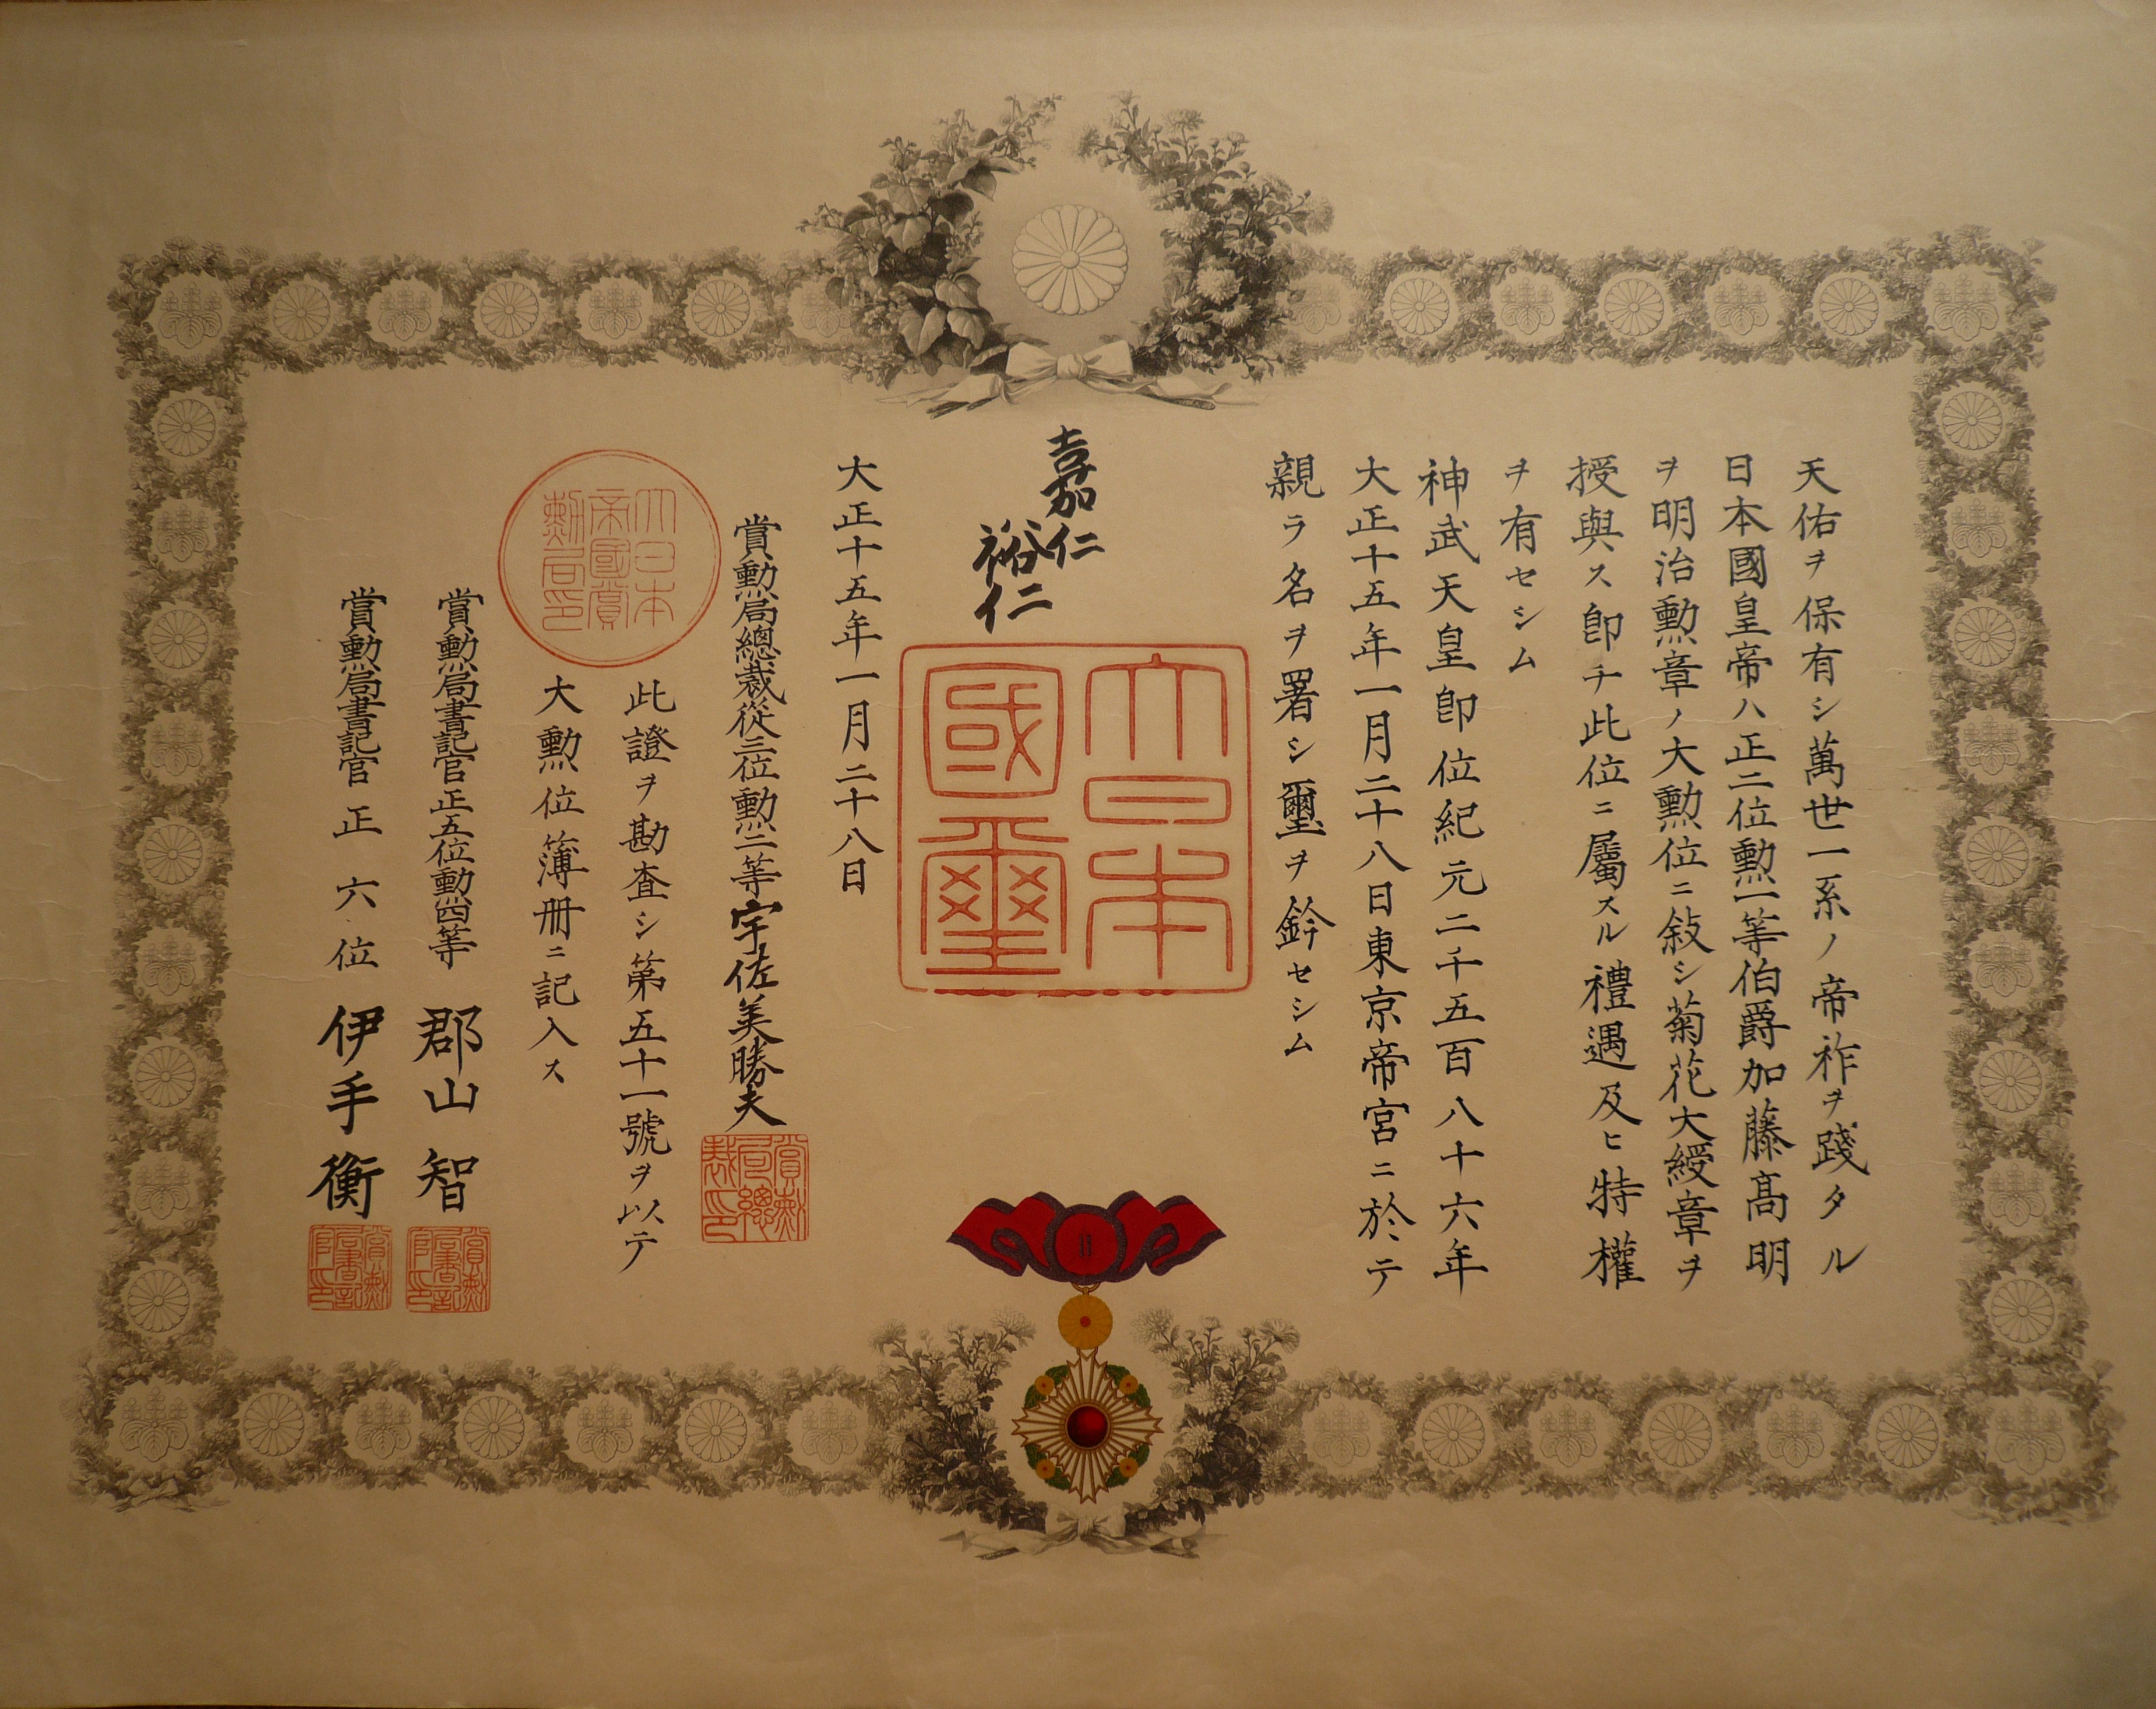 天佑ヲ保有シ萬世一系ノ帝祚ヲ踐タル
日本國皇帝ハ正二位勲一等伯爵加藤高明
ヲ明治勲章ノ大勲位ニ敍シ菊花大綬章ヲ
授與ス卽チ此位ニ屬スル禮遇及ヒ特權
ヲ有セシム
神武天皇卽位紀元二千五百八十六年
大正十五年一月二十八日東京帝宮ニ於テ
親ラ名ヲ署シ璽ヲ鈐セシム
嘉仁
裕仁
大日本
國璽
大正十五年一月二十八日
賞勲局總裁從三位勲二等宇佐美勝夫
賞勲
局總
裁印
此證ヲ勘査シ第五十一號ヲ以テ
大勲位簿册ニ記入ス
大日本
帝國賞
勲局印
賞勲局書記官正五位勲四等 郡山智
賞勲
局書記
官印
賞勲局書記官正六位 伊手衡
賞勲
局書記
官印